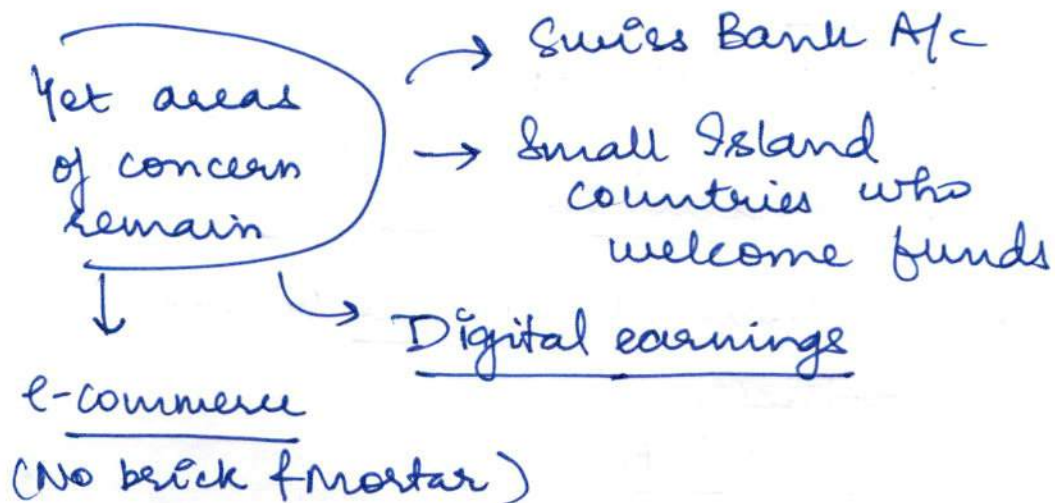 Yet areas
of concern
remain
Swiss Bank A/c
Small Island
countries who
welcome funds
Digital earnings
e-commerce
(No brick & Mortar)